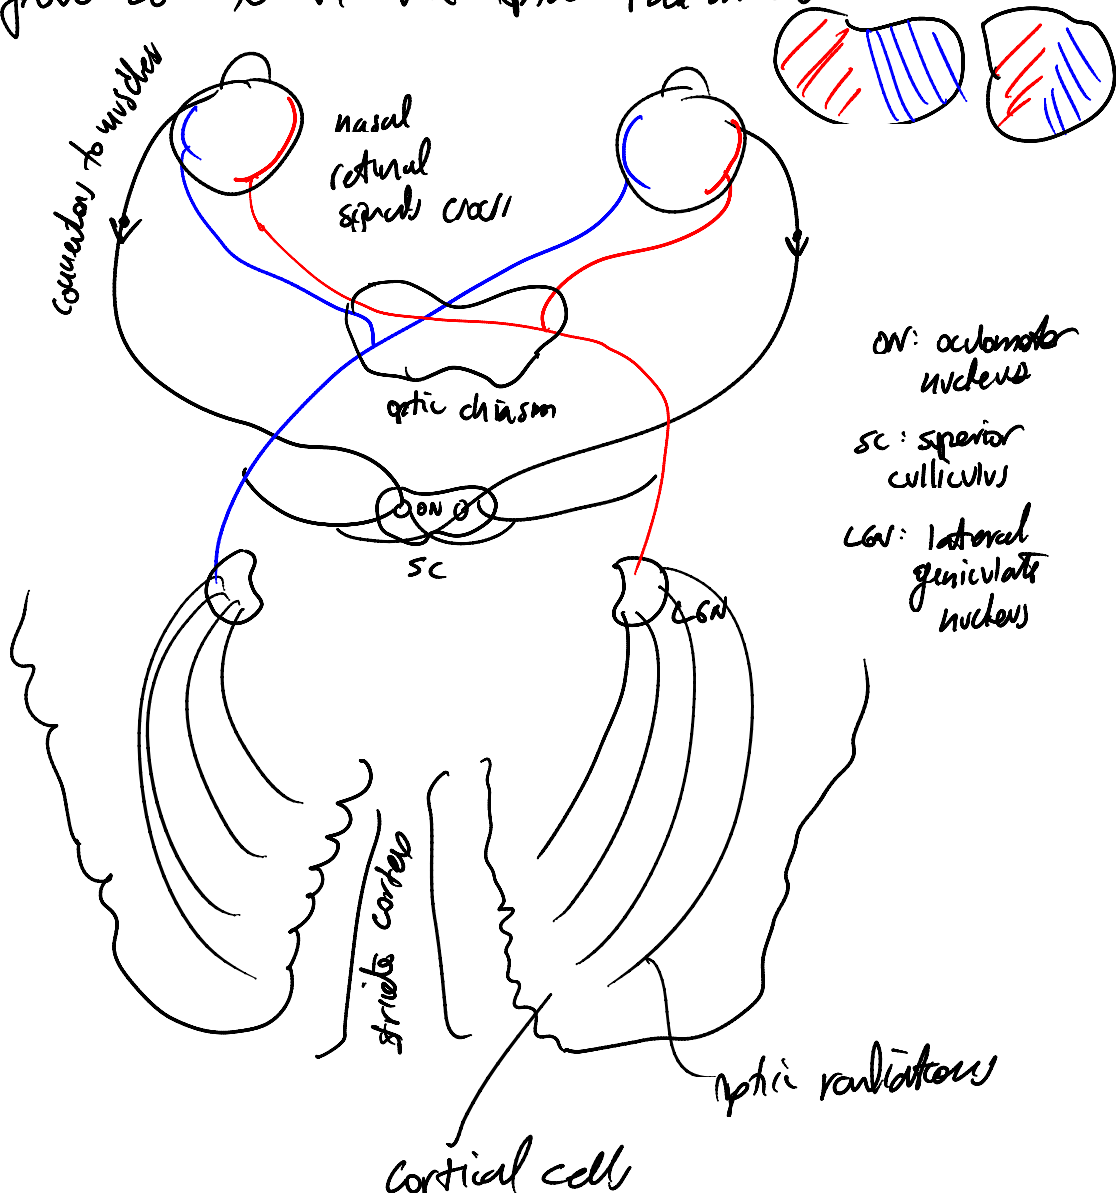 connections to muscles
nasal
retinal
signals cross
optic chiasm
ON: oculomotor
nucleus
SC: superior
culliculus
LGN: lateral
geniculate
nucleus
ON
SC
LGN
striate cortex
optic radiations
cortical cells